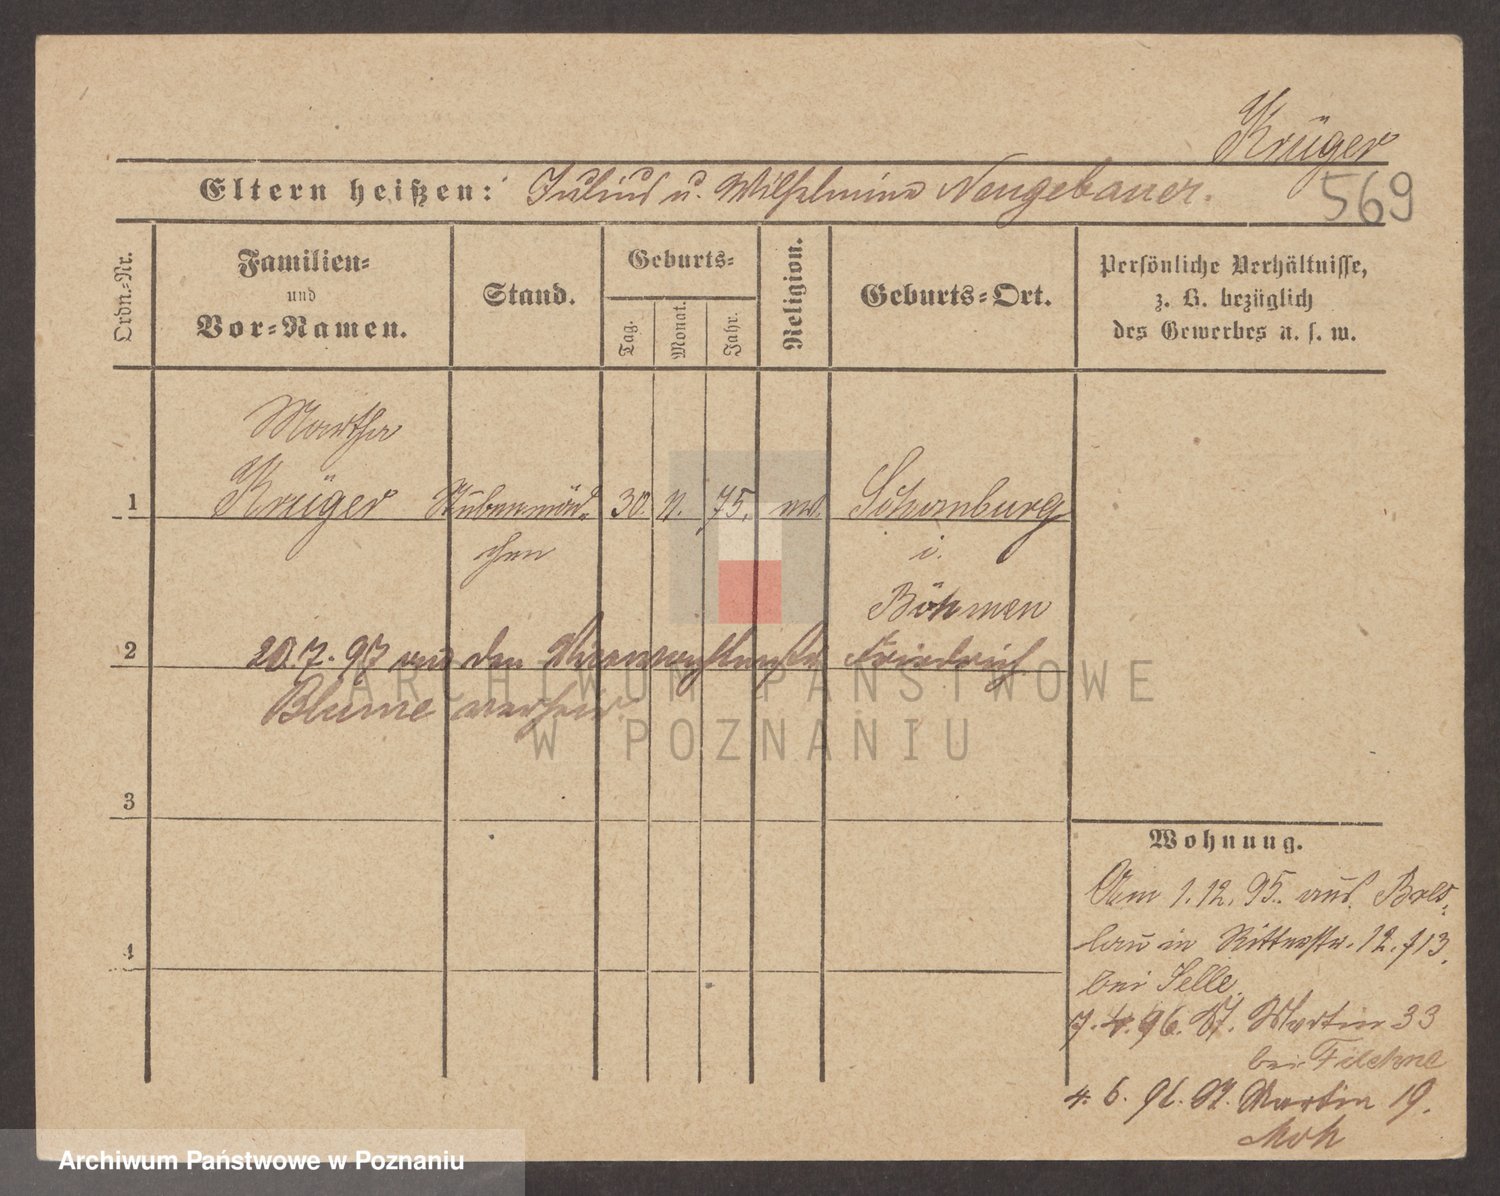 Krüger
569
Eltern heißen: Julius u. Wilhelmine Neugebauer.
Ordn.-Nr.
Familien-
und
Vor-Namen.
Stand.
Geburts-
Tag.
Monat.
Jahr.
Religion.
Geburts-Ort.
Persönliche Verhältnisse,
z. B. bezüglich
des Gewerbes u. s. w.
Martha
1 Krüger Stubenmäd- 30 11. 75. ev. Schomburg
chen i.
Böhmen
2 20.7.97 mit dem Friedrich
Blume verheir.
3
4
Wohnung.
Am 1.12.95. aus Bres-
lau in Ritterstr. 12./13.
bei Selle.
7.4.96. St. Martin 33
bei Filehne
4.6.96. St. Martin 19.
Moh
ARCHIWUM PAŃSTWOWE
W POZNANIU
Archiwum Państwowe w Poznaniu